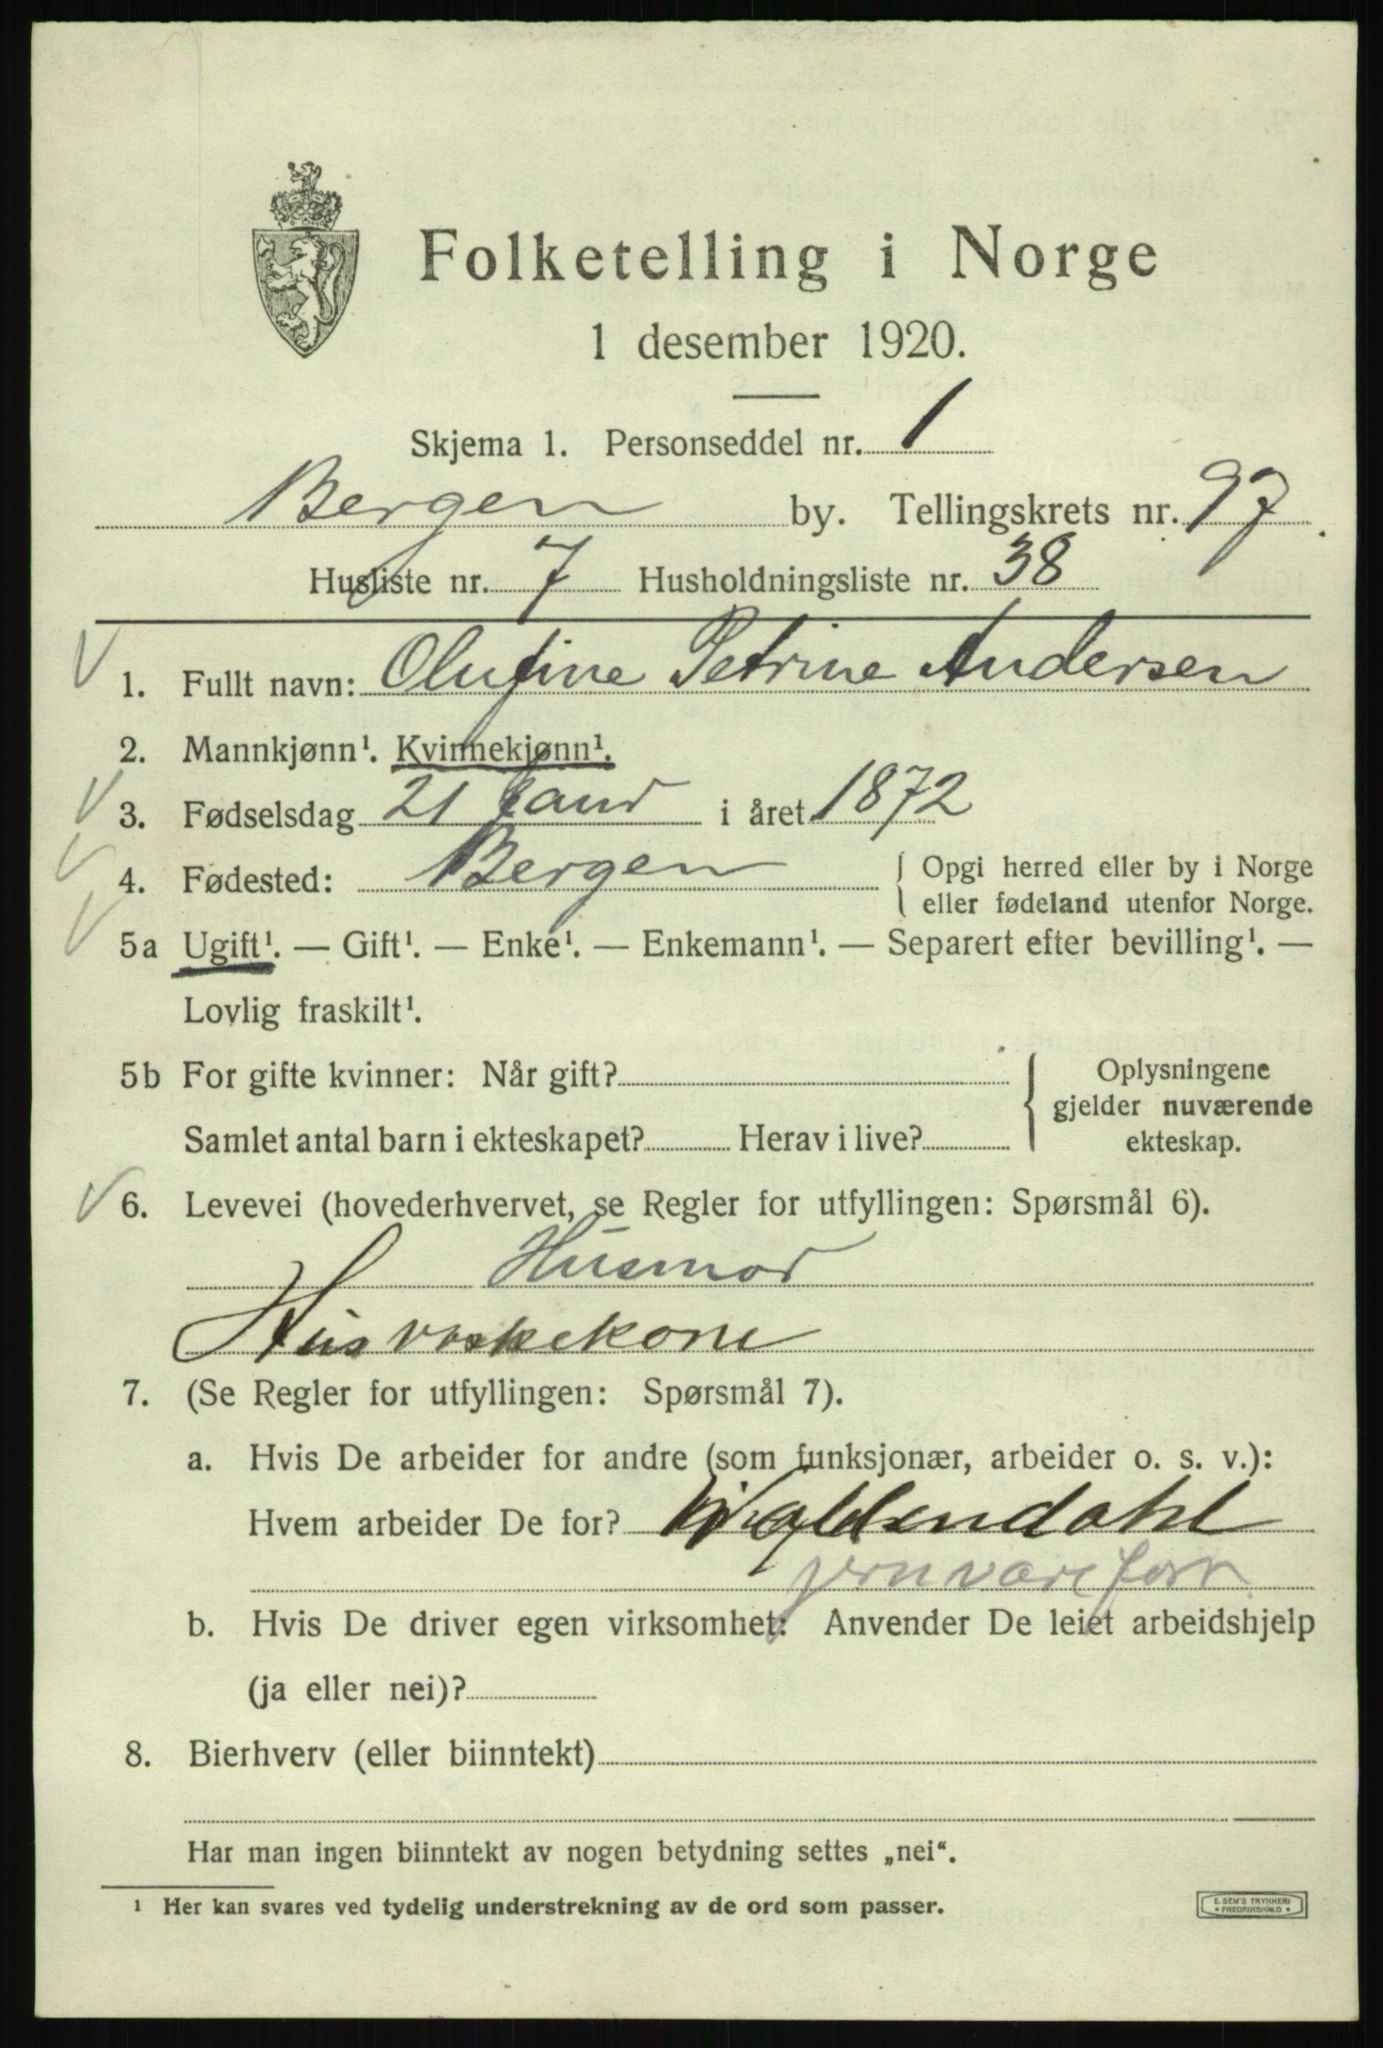 Folketelling i Norge
1 desember 1920.
Skjema 1. Personseddel nr. 1
Bergen by. Tellingskrets nr. 97.
Husliste nr. 7 Husholdningsliste nr. 38
1. Fullt navn: Olufine Petrine Andersen
2. Mannkjønn¹. Kvinnekjønn¹.
3. Fødselsdag 21 Januar i året 1872
4. Fødested: Bergen { Opgi herred eller by i Norge
eller fødeland utenfor Norge.
5a Ugift¹. — Gift¹. — Enke¹. — Enkemann¹. — Separert efter bevilling¹. —
Lovlig fraskilt¹.
5b For gifte kvinner: Når gift?
Samlet antal barn i ekteskapet? Herav i live?
Oplysningene
gjelder nuværende
ekteskap.
6. Levevei (hovederhvervet, se Regler for utfyllingen: Spørsmål 6).
Husmor
Husvaskekone
7. (Se Regler for utfyllingen: Spørsmål 7).
a. Hvis De arbeider for andre (som funksjonær, arbeider o. s. v.):
Hvem arbeider De for? Waldendahl
jernvareforr.
b. Hvis De driver egen virksomhet: Anvender De leiet arbeidshjelp
(ja eller nei)?
8. Bierhverv (eller biinntekt)
Har man ingen biinntekt av nogen betydning settes „nei“.
¹ Her kan svares ved tydelig understrekning av de ord som passer.
E. SEM'S TRYKKERI
FREDRIKSHALD